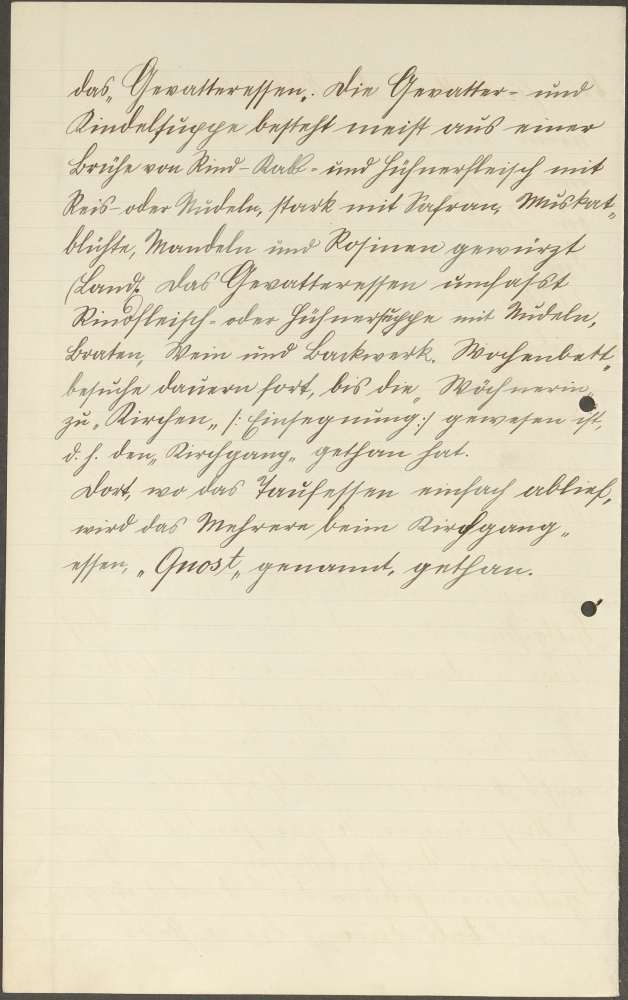 das „Gevatteressen". Die Gevatter- und
Kindelsuppe besteht meist aus einer
Brühe von Rind- Kalb- und Hühnerfleisch mit
Reis- oder Nudeln, stark mit Safran, Muskat„
blüthe, Mandeln und Rosinen gewürzt
(Land). Das Gevatteressen umfasst
Rindfleisch- oder Hühnersuppe mit Nudeln,
Braten, Wein und Backwerk. Wochenbett„
besuche dauern fort, bis die „Wöchnerin„
zu „Kirchen„ /: Einsegnung :/ gewesen ist,
d. h. den „Kirchgang„ gethan hat.
Dort, wo das Taufessen einfach ablief,
wird das Mehrere beim Kirchgang„
essen, „Quost„ genannt, gethan.